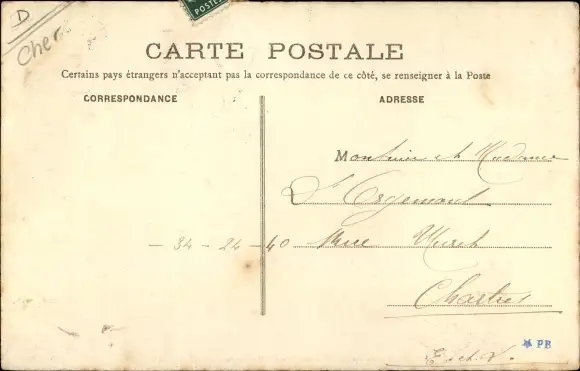 D
Cher
POSTES
CARTE POSTALE
Certains pays étrangers n'acceptant pas la correspondance de ce côté, se renseigner à la Poste
CORRESPONDANCE
ADRESSE
Monsieur et Madame
D'Orgemont
- 34 - 24 - 40
Rue Muret
Chartres
E. et L.
PB